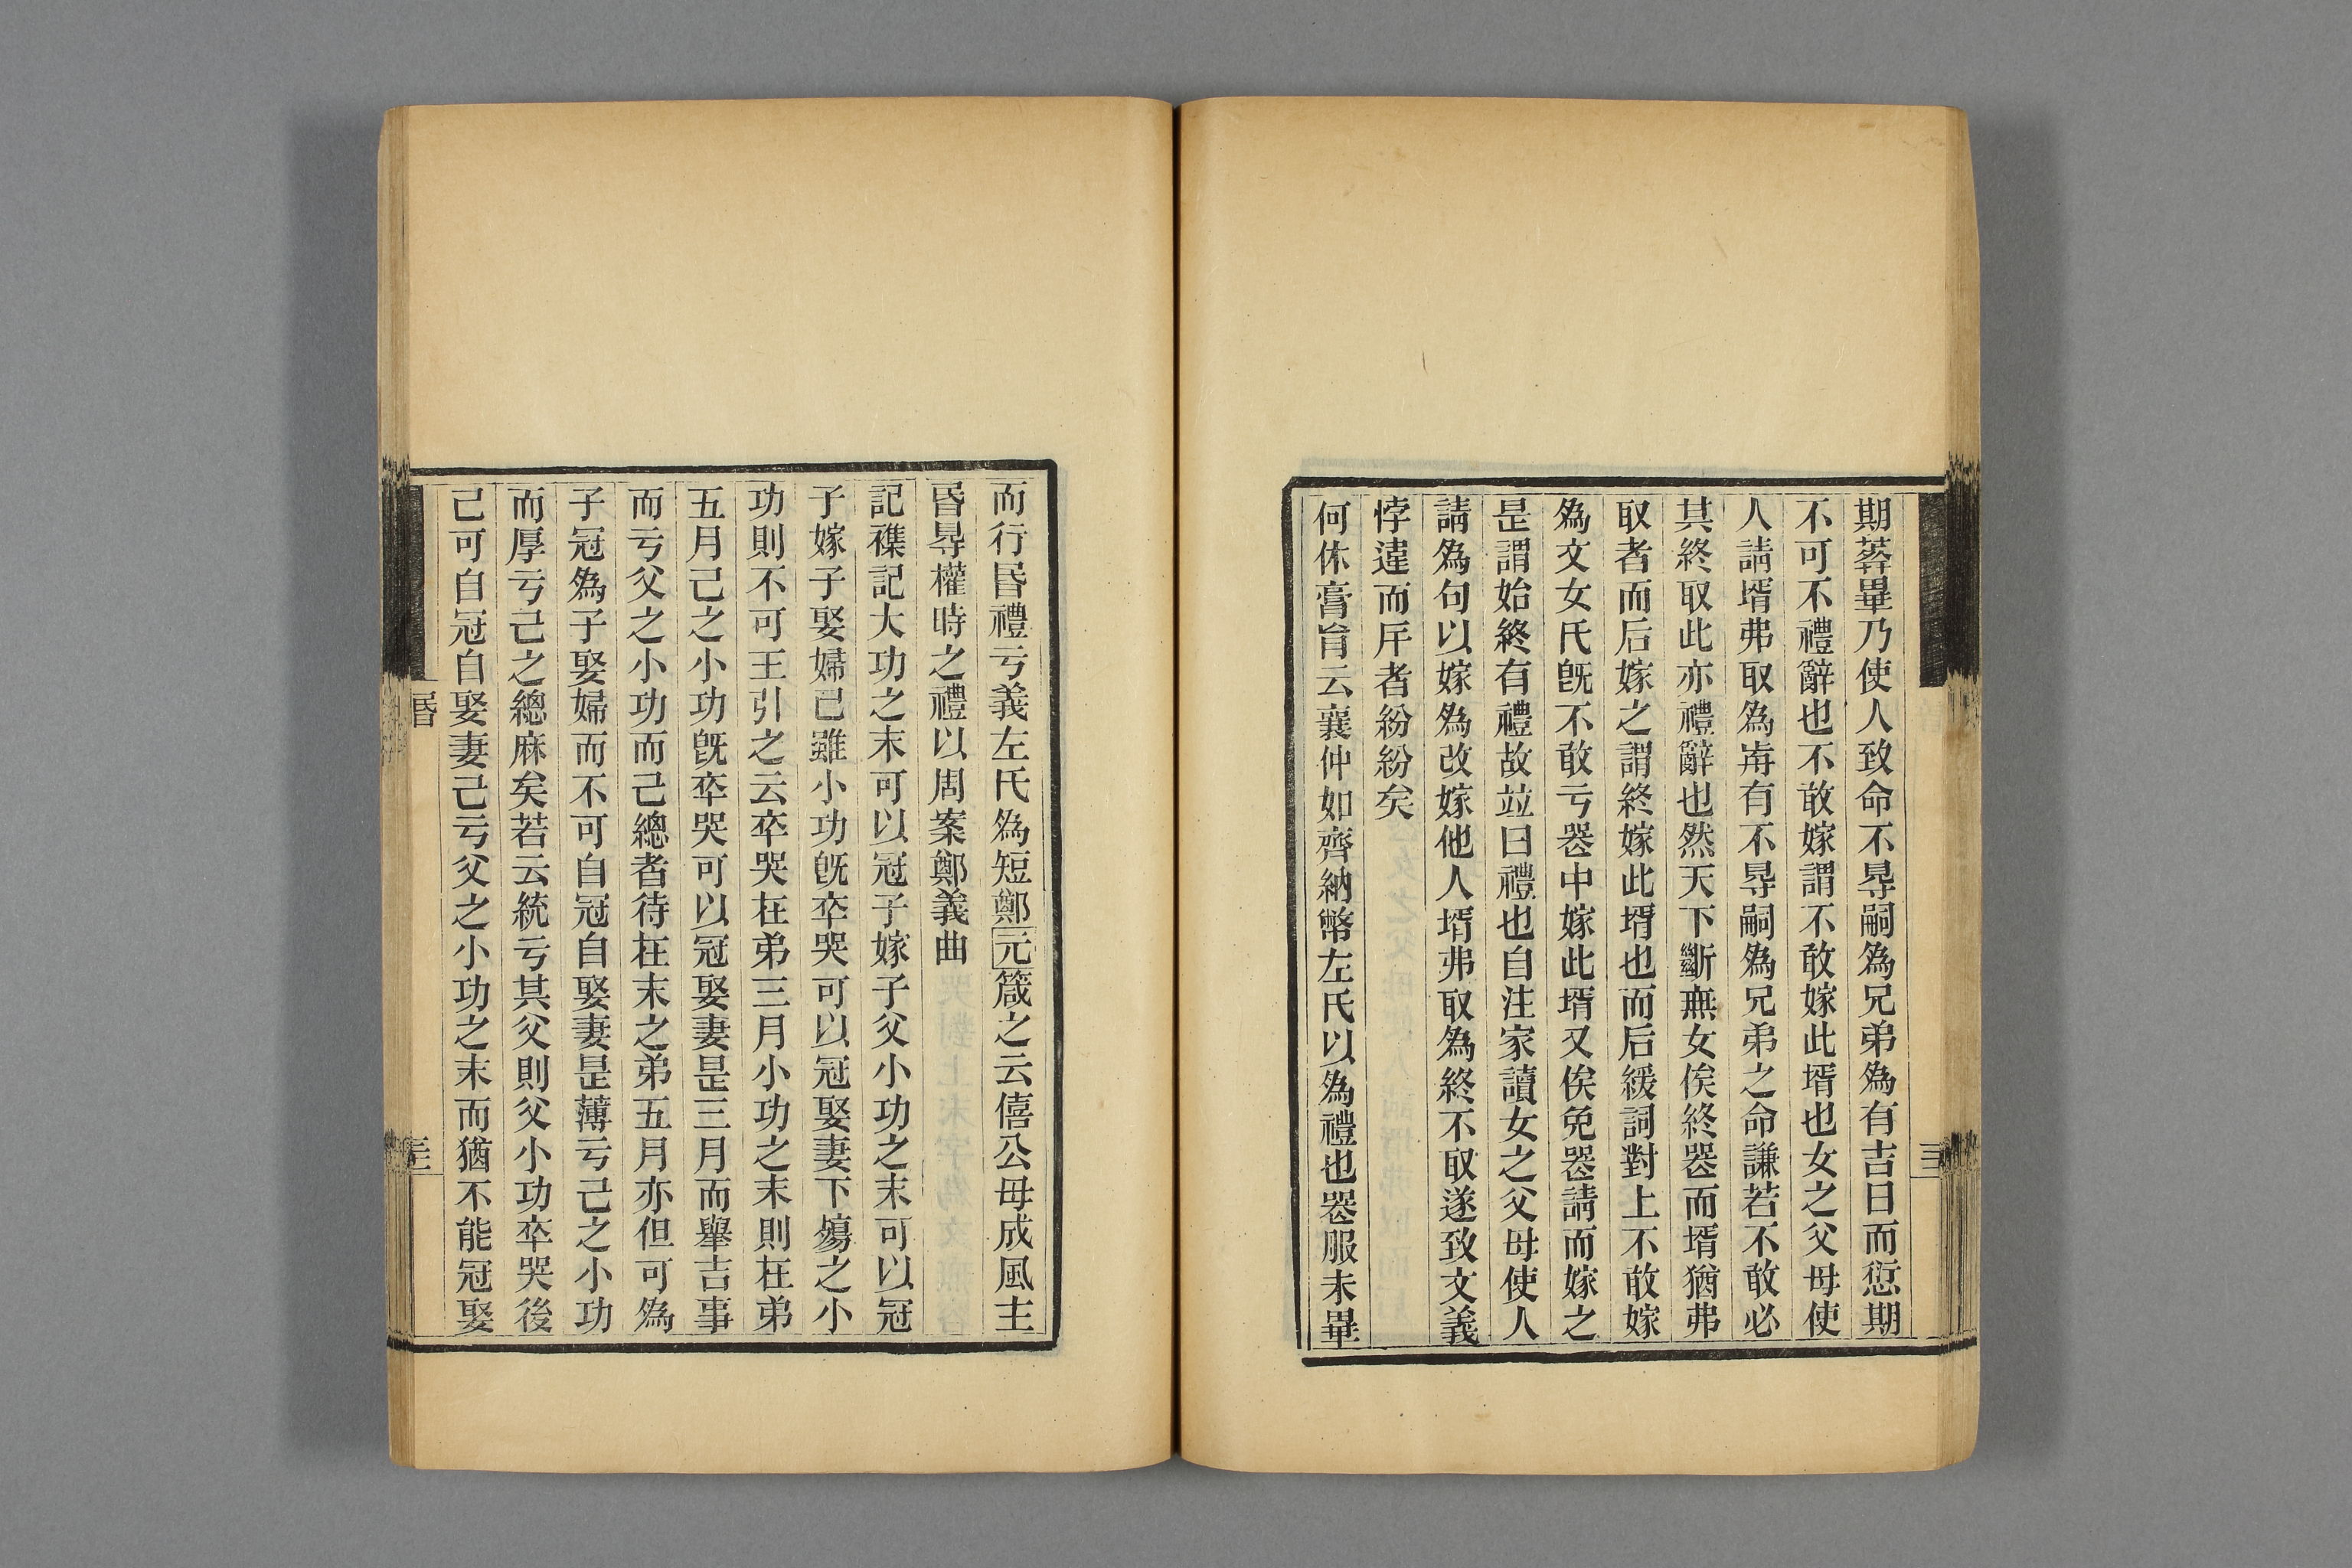 期葬畢乃使人致命不㝵嗣為兄弟為有吉日而愆期
不可不禮辭也不敢嫁謂不敢嫁此壻也女之父母使
人請壻弗取為歬有不㝵嗣為兄弟之命謙若不敢必
其終取此亦禮辭也然天下斷無女俟終器而壻猶弗
取者而后嫁之謂終嫁此壻也而后緩詞對上不敢嫁
為文女氏旣不敢亏器中嫁此壻又俟免器請而嫁之
是謂始終有禮故竝曰禮也自注家讀女之父母使人
請為句以嫁為改嫁他人壻弗取為終不取遂致文義
悖違而厈者紛紛矣
何休膏肓云襄仲如齊納幣左氏以為禮也器服未畢
而行昏禮亏義左氏為短鄭元箴之云僖公母成風主
昏㝵權時之禮以周案鄭義曲
記襍記大功之末可以冠子嫁子父小功之末可以冠
子嫁子娶婦已雖小功旣卒哭可以冠娶妻下殤之小
功則不可王引之云卒哭在弟三月小功之末則在弟
五月己之小功旣卒哭可以冠娶妻是三月而舉吉事
而亏父之小功而己總者待在末之弟五月亦但可為
子冠為子娶婦而不可自冠自娶妻是薄亏己之小功
而厚亏己之總麻矣若云統亏其父則父小功卒哭後
己可自冠自娶妻己亏父之小功之末而猶不能冠娶
昏